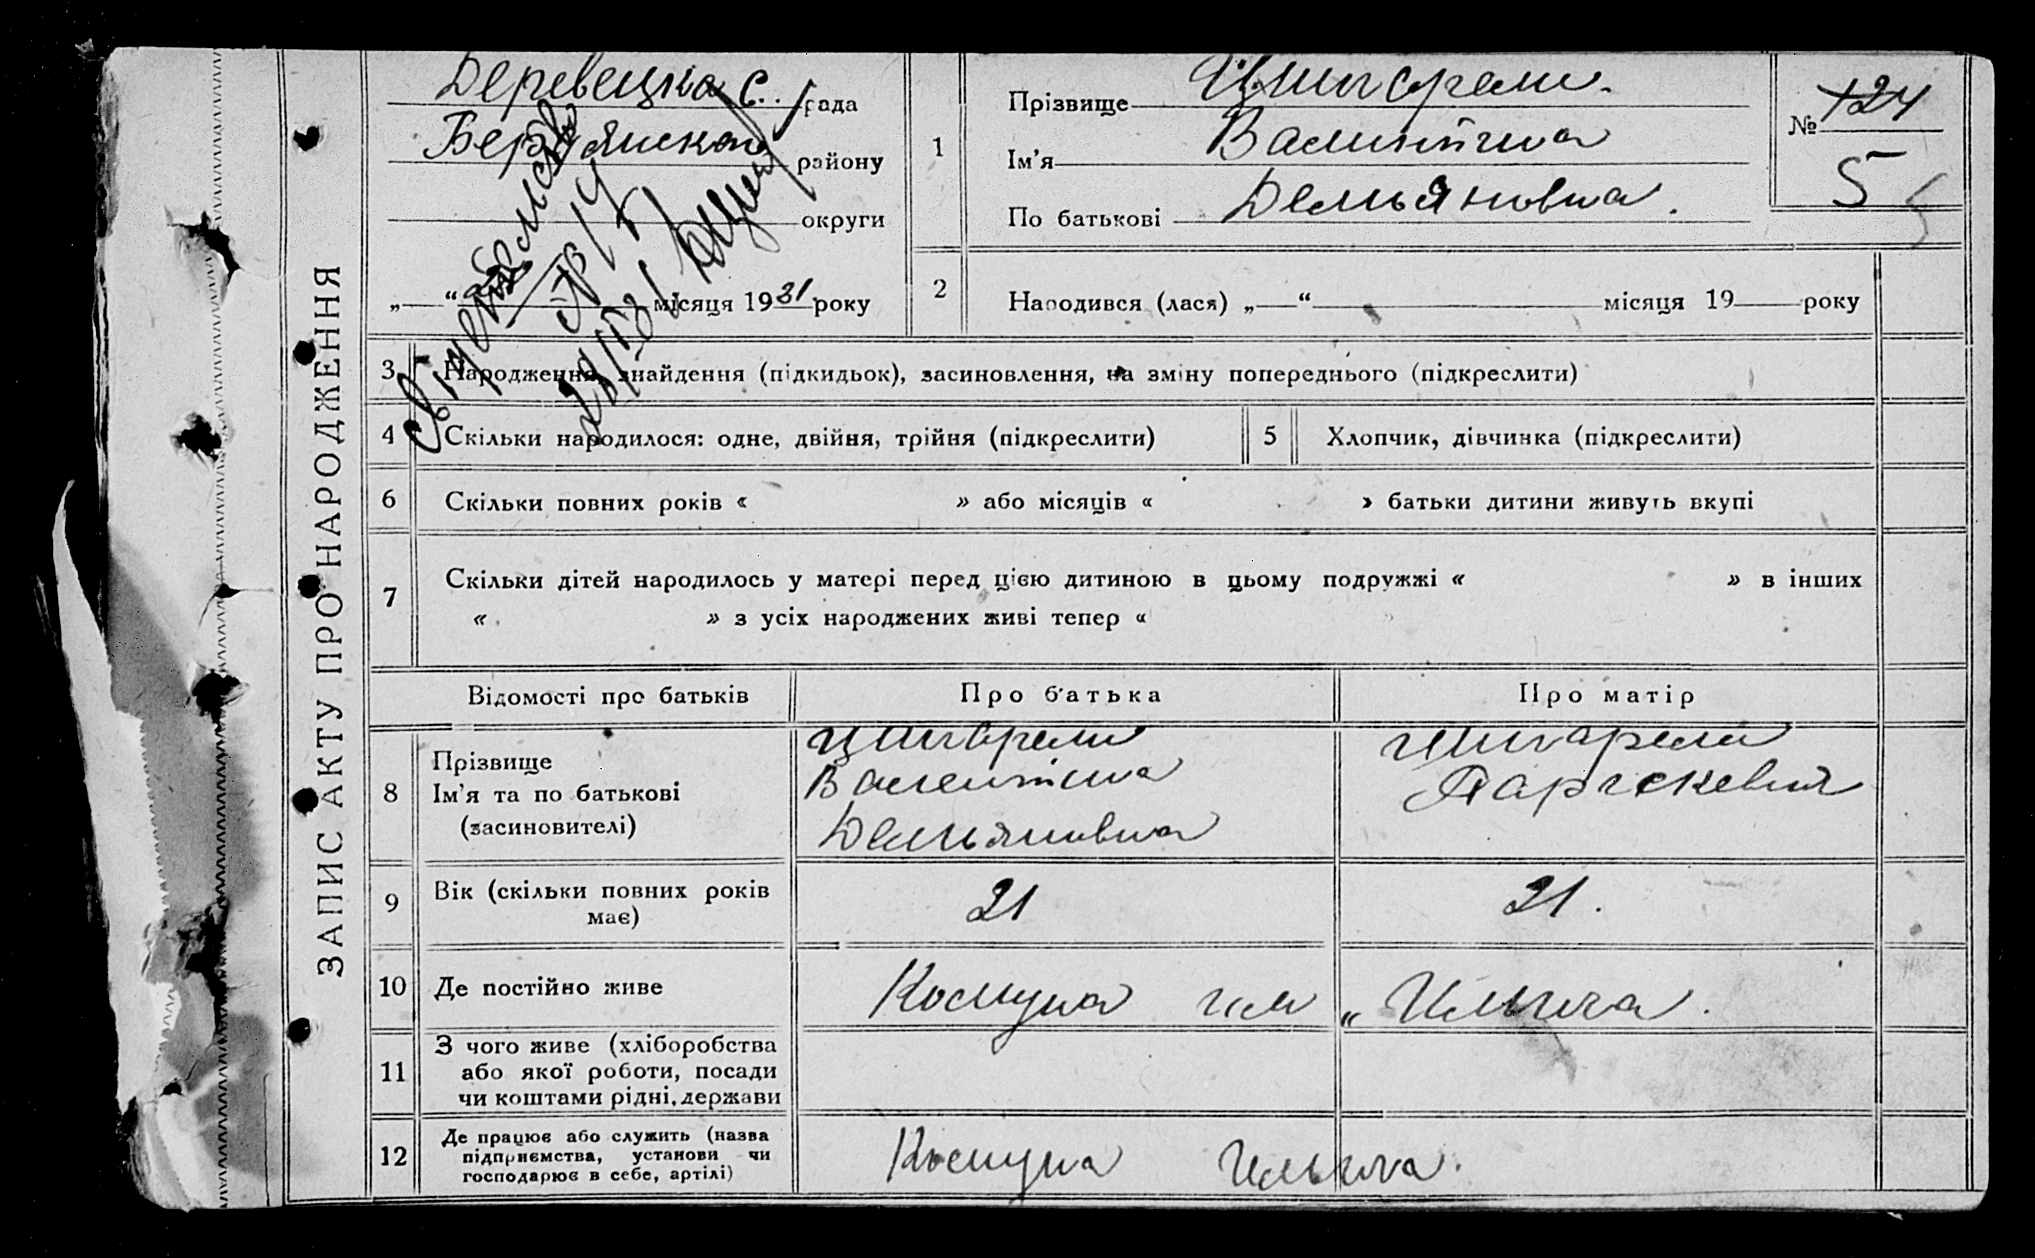 ЗАПИС АКТУ ПРО НАРОДЖЕННЯ
Деревецка с. рада
Бердянском району
округи
„ “ місяця 1931 року
1
Прізвище
Ім’я Валинтина
По батькові Демьяновна.
№ 124
5
2
Народився (лася) „ “ місяця 19 року
3
Народження, знайдення (підкидьок), засиновлення, на зміну попереднього (підкреслити)
4
Скільки народилося: одне, двійня, трійня (підкреслити)
5
Хлопчик, дівчинка (підкреслити)
6
Скільки повних років « » або місяців « » батьки дитини живуть вкупі
7
Скільки дітей народилось у матері перед цією дитиною в цьому подружжі « » в інших
« » з усіх народжених живі тепер «
Відомості про батьків
Про батька
Про матір
8
Прізвище
Ім’я та по батькові
(засиновителі)
Валентина
Демьяновна
9
Вік (скільки повних років
має)
21
21.
10
Де постійно живе
Комуна им „Ильича.
11
З чого живе (хліборобства
або якої роботи, посади
чи коштами рідні, держави
12
Де працює або служить (назва
підприємства, установи чи
господарює в себе, артілі)
Комуна Ильича.